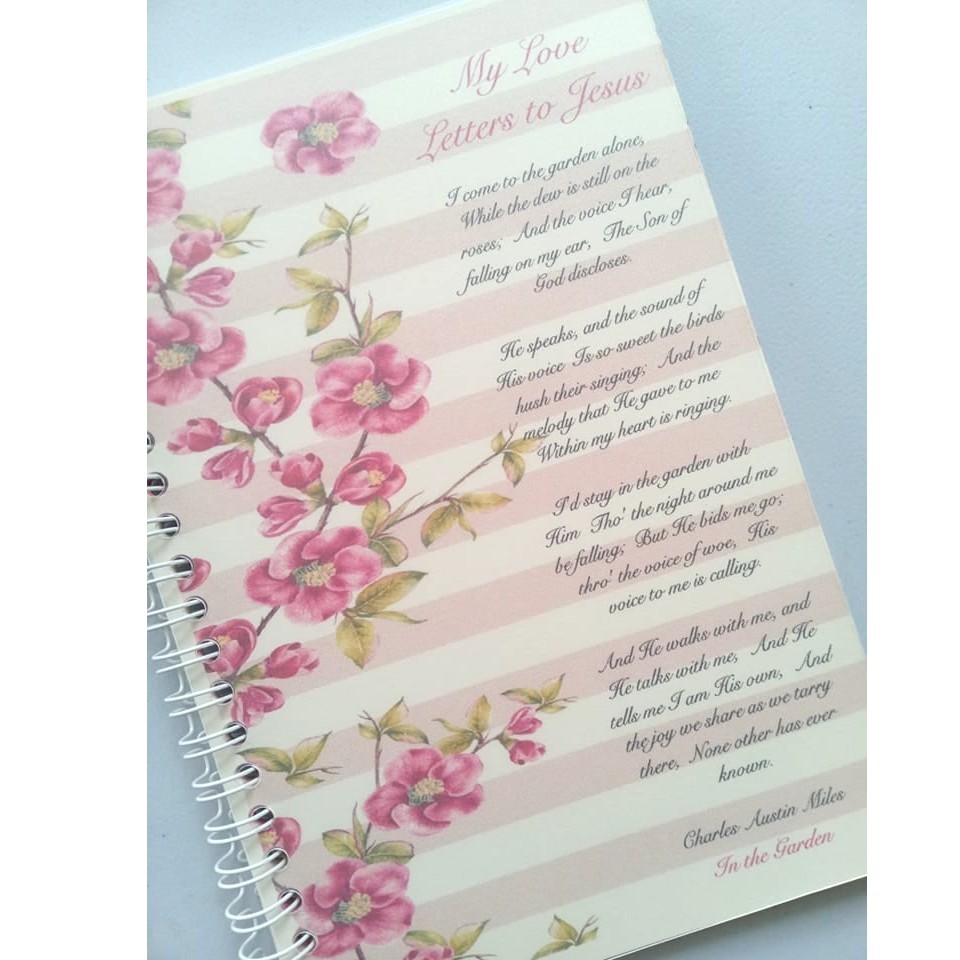 My Love
Letters to Jesus
I come to the garden alone,
While the dew is still on the
roses; And the voice I hear,
falling on my ear, The Son of
God discloses.
He speaks, and the sound of
His voice Is so sweet the birds
hush their singing; And the
melody that He gave to me
Within my heart is ringing.
I'd stay in the garden with
Him Tho' the night around me
be falling; But He bids me go;
thro' the voice of woe, His
voice to me is calling.
And He walks with me, and
He talks with me, And He
tells me I am His own, And
the joy we share as we tarry
there, None other has ever
known.
Charles Austin Miles
In the Garden